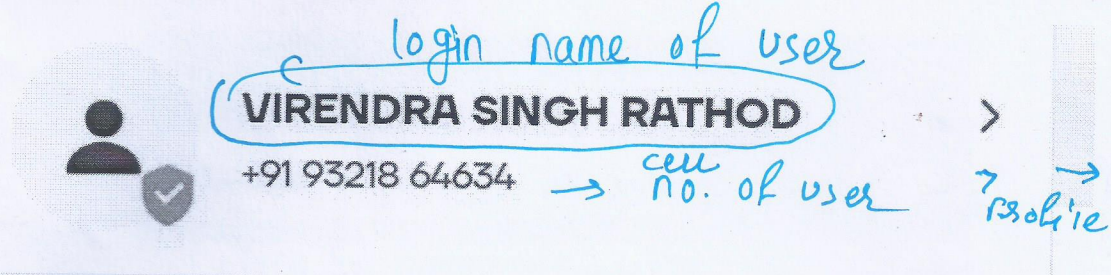 login name of user
VIRENDRA SINGH RATHOD
+91 93218 64634 → cell no. of user
→ Profile →